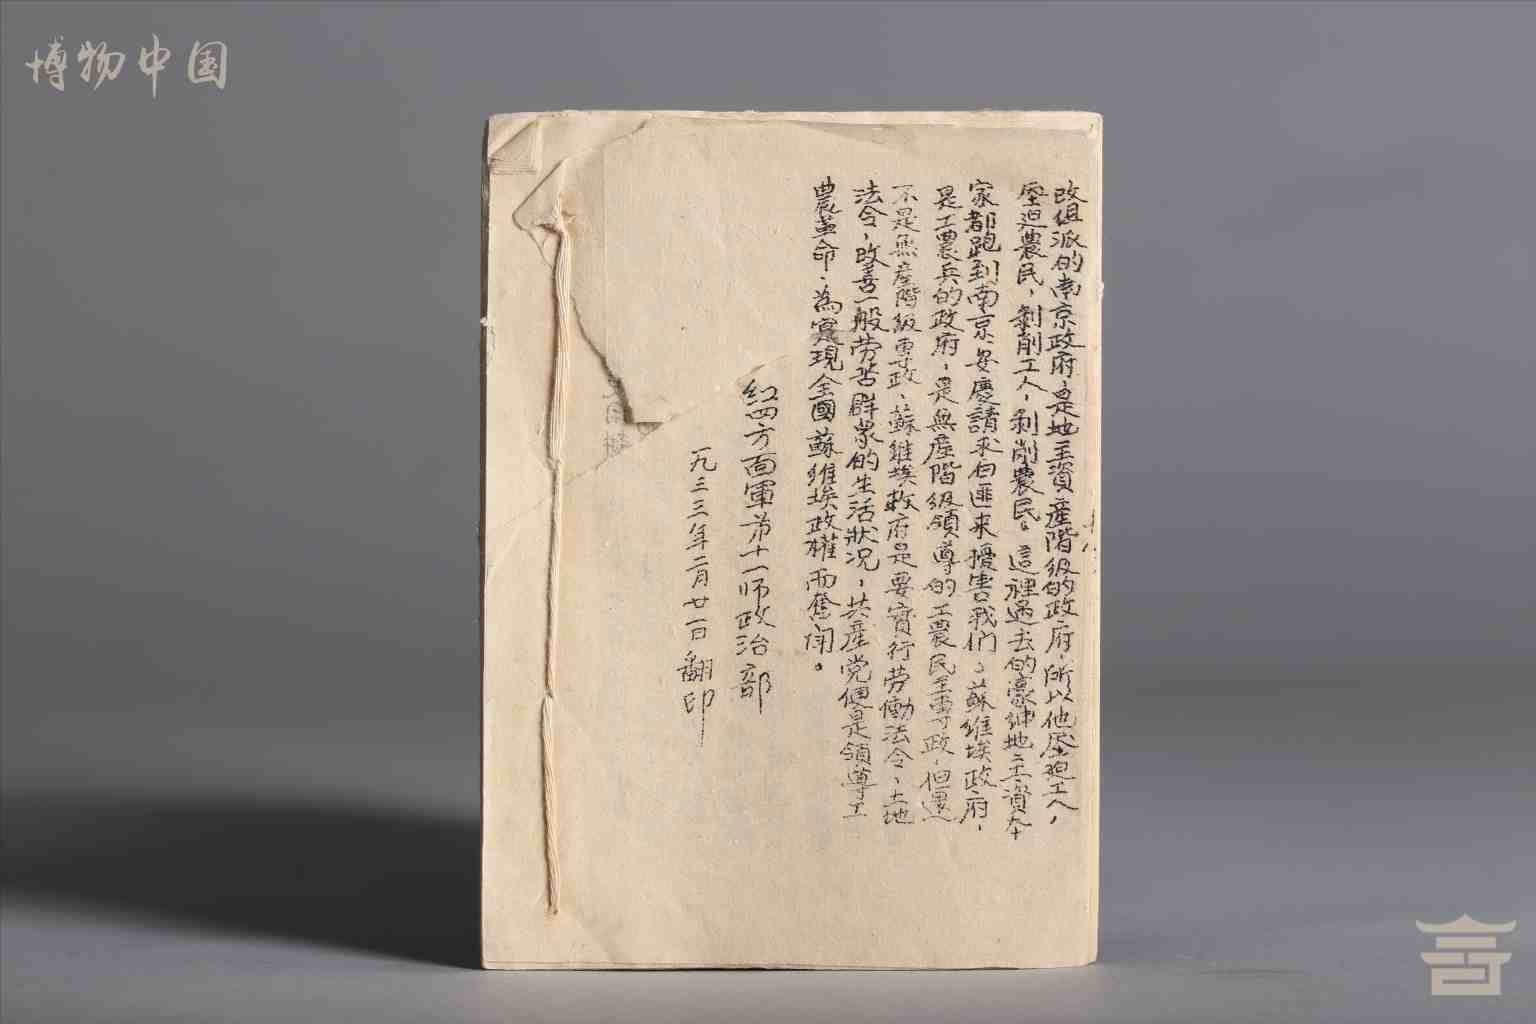 博物中国
改组派的南京政府，是地主資產階級的政府，所以他压迫工人，
压迫農民，剝削工人，剝削農民。這裡過去的豪紳地主資本
家都跑到南京、安慶請求白匪來擾害我們。蘇維埃政府，
是工農兵的政府，是無產階級領導的工農民主專政，但還
不是無產階級專政，蘇維埃政府是要實行劳働法令，土地
法令，改善一般劳苦群衆的生活狀况，共產党便是領導工
農革命，為實現全國蘇維埃政權而奮鬥。
紅四方面軍第十一師政治部
一九三三年二月廿一日翻印